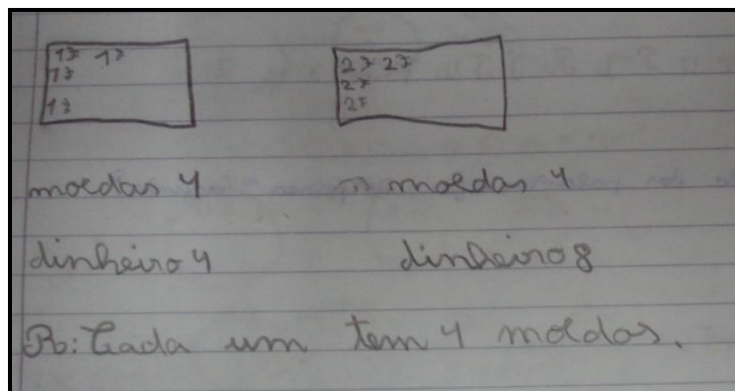 1$ 1$ 2$ 2$
1$ 2$
1$ 2$
moedas 4 moedas 4
dinheiro 4 dinheiro 8
R: Cada um tem 4 moedas.